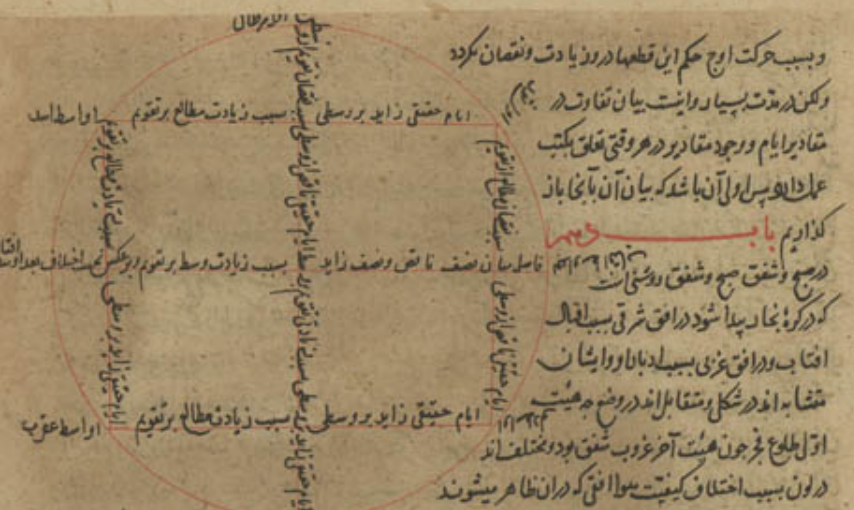 و بسبب حرکت اوج حکم این قطعها در و زیادت و نقصان مکردد
ولکن در مدت بسیار و اینست بیان تفاوت در
مقادیر ایام و وجود مقادیر در هر وقتی تعلق بکتب
عمل دارد پس اولی آن باشد که بیان آن بآنجا باز
کذاریم باب دهم
در صبح و شفق صبح و شفق روشنی است
که در کره بخار پیدا شود در افق شرقی بسبب اقبال
افتاب و در افق غربی بسبب ادبار او و ایشان
متشابه اند در شکل و متقابل اند در وضع چه هیئت
اول طلوع فجر چون هیئت آخر غروب شفق بود و مختلف اند
در لون بسبب اختلاف کیفیت هوا افتی که در ان ظاهر میشوند
ایام حقیقی زاید بر وسطی بسبب زیادت مطالع بر تقویم
اواسط اسد
فاصل میان نصف ناقص و نصف زاید
بسبب زیادت وسط بر تقویم
ایام حقیقی زاید بر وسطی بسبب زیادت مطالع بر تقویم
اواسط عقرب
ایام حقیقی ناقص از وسطی بسبب نقصان مطالع از تقویم
ایام حقیقی زاید بر وسطی بسبب زیادت مطالع بر تقویم